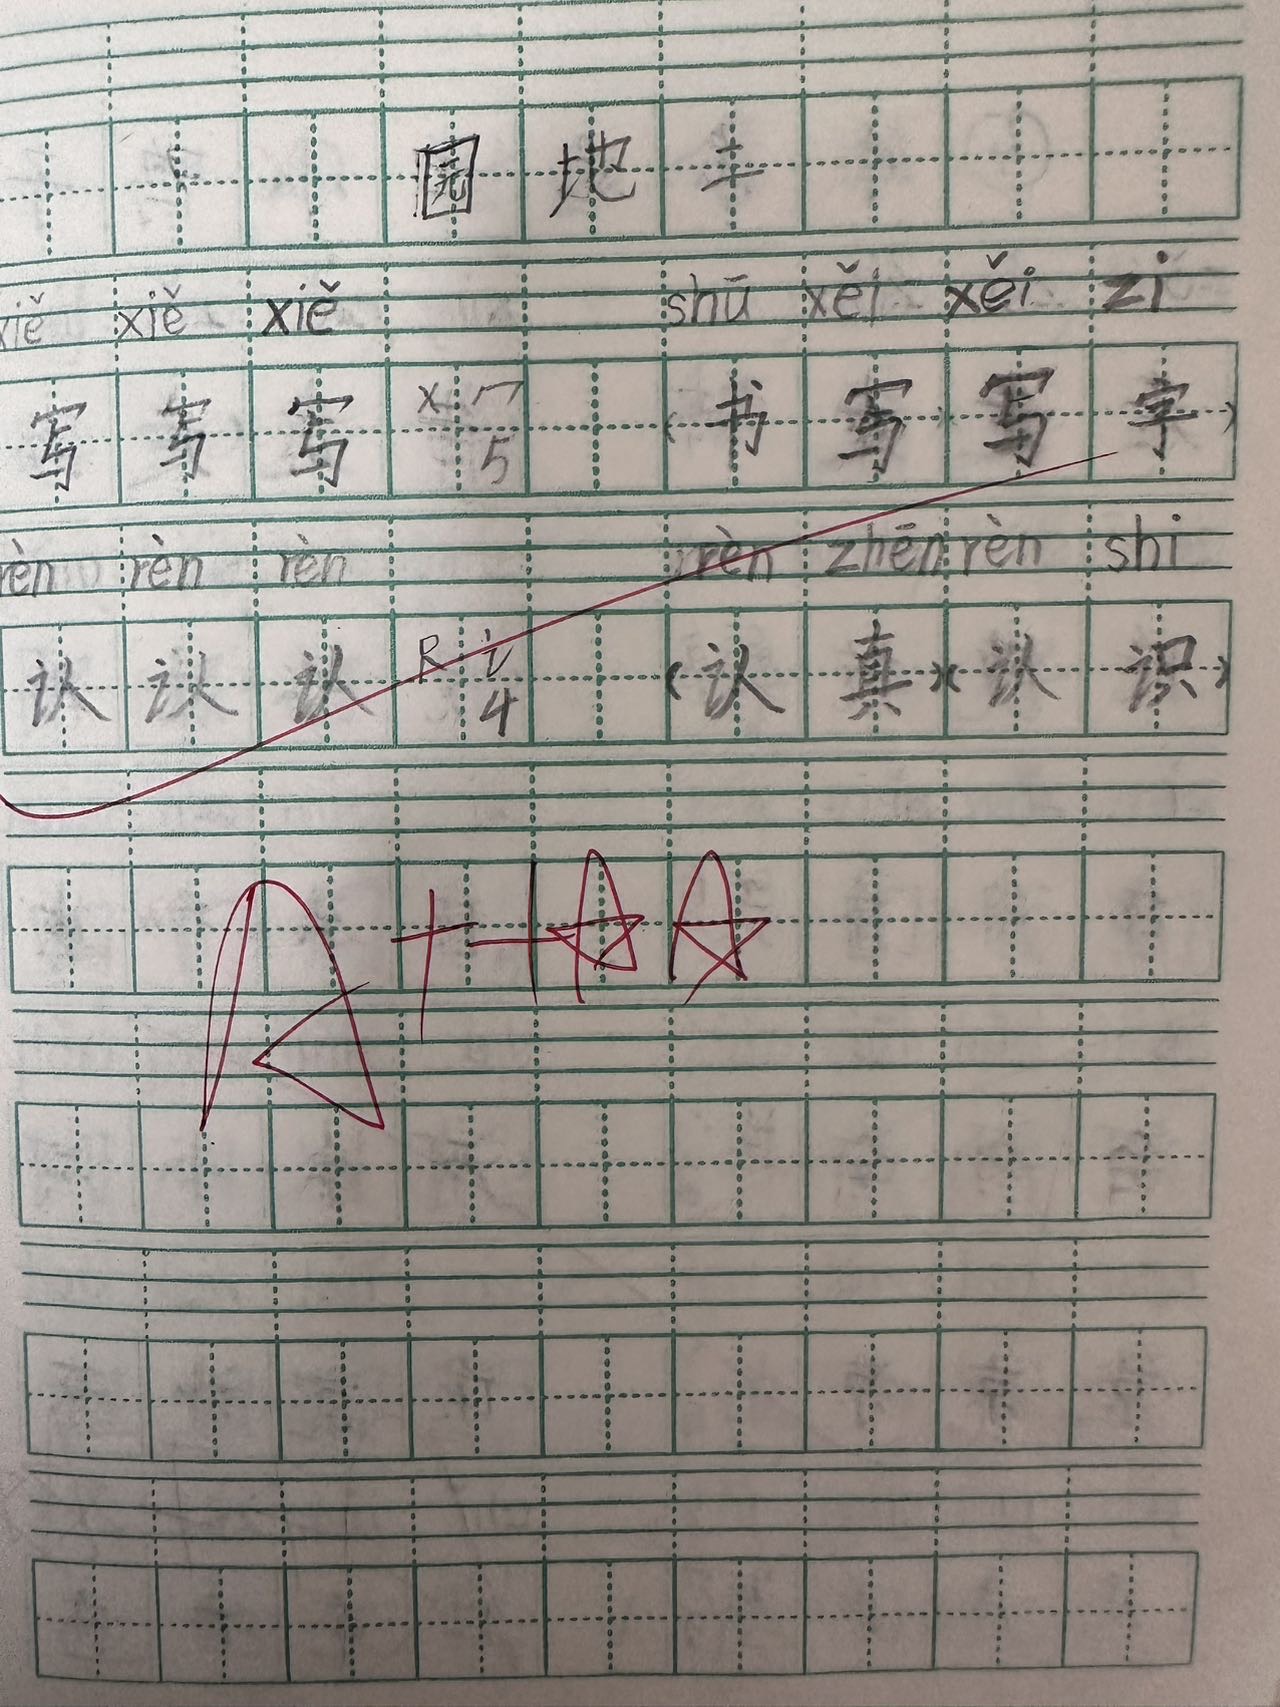 园地二
xiě xiě xiě shū xěi xěi zi
写写写 X 冖 5 (书写写字)
rèn rèn rèn rèn zhēn rèn shi
认认认 R 讠 4 (认真)(认识)
A++